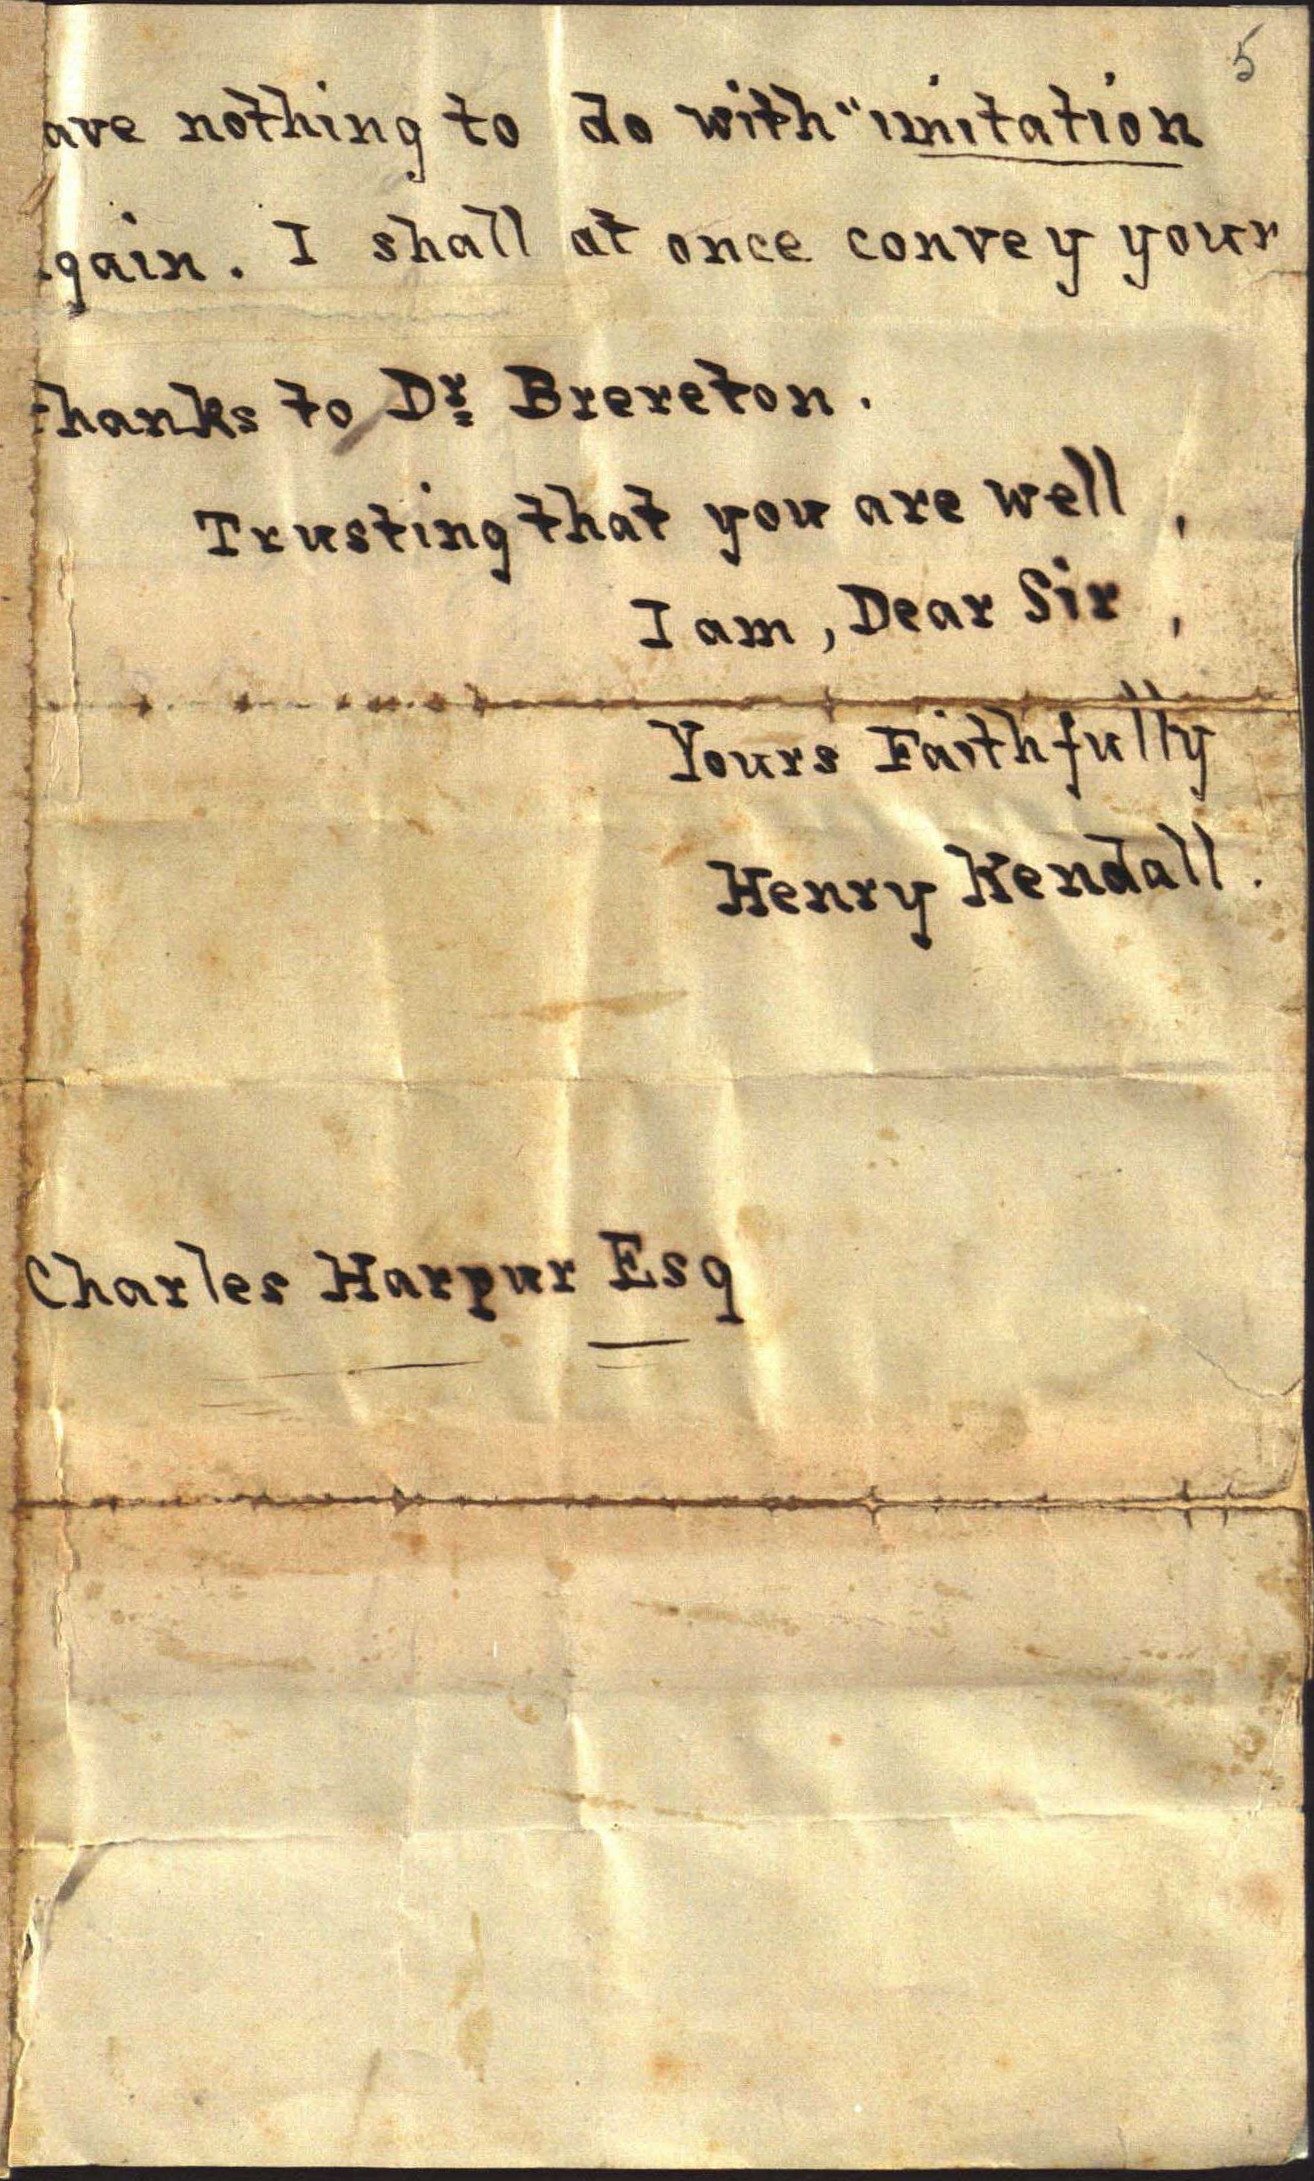 5
ave nothing to do with "imitation
gain. I shall at once convey your
thanks to Dr Brereton.
Trusting that you are well,
I am, Dear Sir,
Yours Faithfully
Henry Kendall.
Charles Harpur Esq